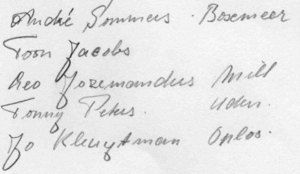 André Sommers - Boxmeer
Toon Jacobs
Leo Jozemanders Mill
Tonny Peters. Uden.
Jo Kluytman Oploo.